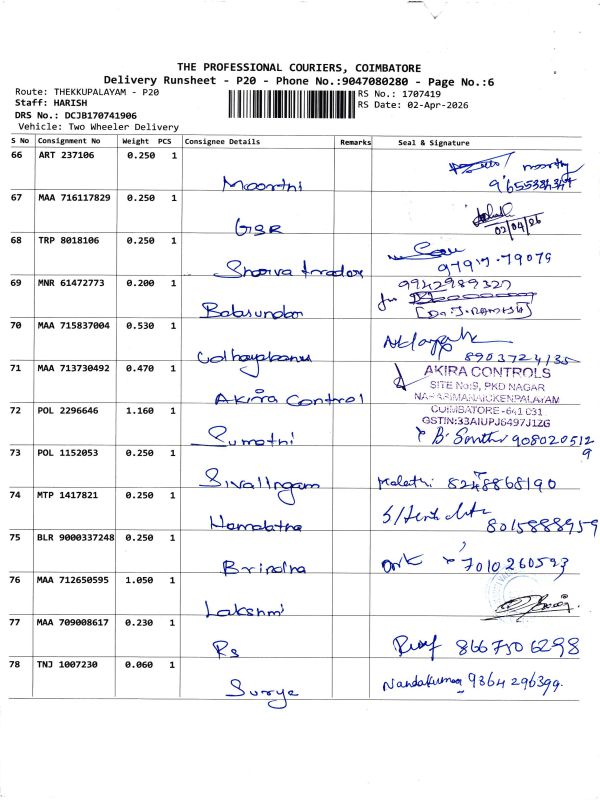 THE PROFESSIONAL COURIERS, COIMBATORE
Delivery Runsheet - P20 - Phone No.:9047080280 - Page No.:6
Route: THEKKUPALAYAM - P20
RS No.: 1707419
Staff: HARISH
RS Date: 02-Apr-2026
DRS No.: DCJB170741906
Vehicle: Two Wheeler Delivery
S No Consignment No Weight PCS Consignee Details Remarks Seal & Signature
66 ART 237106 0.250 1
Moorthi moorthy
67 MAA 716117829 0.250 1
GSR 02/04/26
68 TRP 8018106 0.250 1
69 MNR 61472773 0.200 1 9942989327
Balasundar for [Dr. J. RAMESH]
70 MAA 715837004 0.530 1
8903724135
71 MAA 713730492 0.470 1 AKIRA CONTROLS
SITE No:9, PKD NAGAR
Akira Control NARASIMANAICKENPALAYAM
72 POL 2296646 1.160 1 COIMBATORE-641 031
GSTIN:33AIUPJ6497J1ZG
Sumathi 9080205129
73 POL 1152053 0.250 1
Sivalingam Malathi 8248868190
74 MTP 1417821 0.250 1
Hemalatha 8015888959
75 BLR 9000337248 0.250 1
Brindha 7010260593
76 MAA 712650595 1.050 1
Lakshmi
77 MAA 709008617 0.230 1
Rs 8667506298
78 TNJ 1007230 0.060 1
Surya Nandakumar 9364296399.